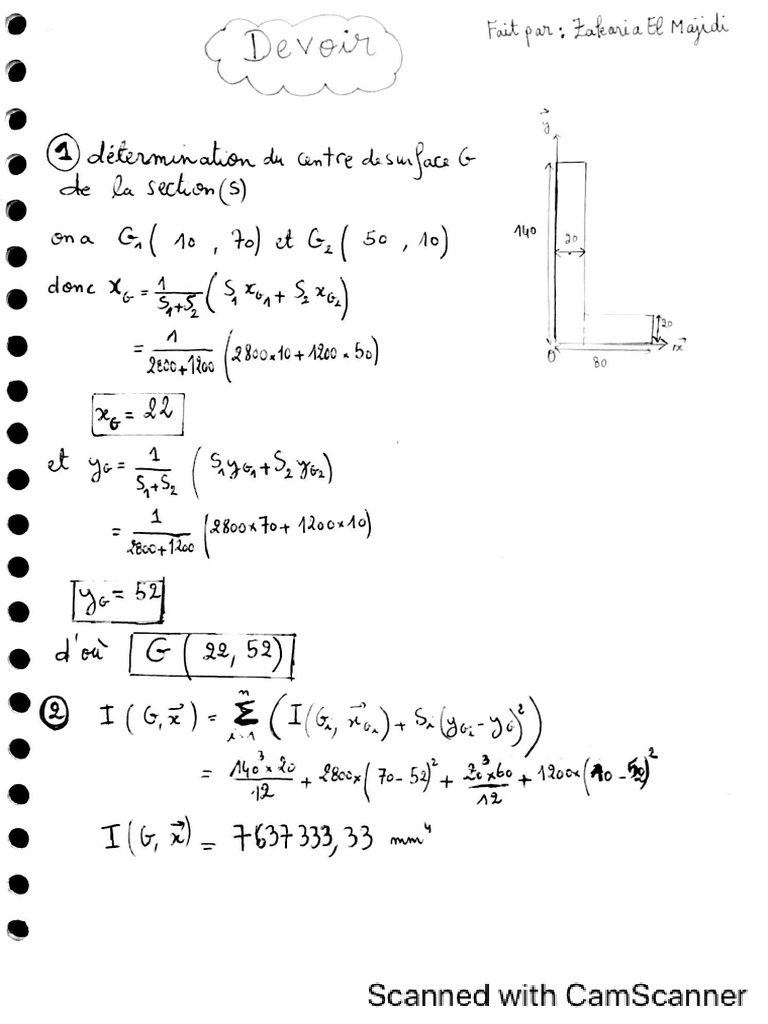 Devoir
Fait par : Zakaria El Majidi
① détermination du centre de surface G
de la section (S)
on a G₁( 10 , 70) et G₂( 50 , 10)
donc x_G = 1/(S₁+S₂) (S₁ x_G₁ + S₂ x_G₂)
= 1/(2800+1200) (2800×10+1200×50)
x_G = 22
et y_G = 1/(S₁+S₂) (S₁y_G₁+S₂y_G₂)
= 1/(2800+1200) (2800×70+1200×10)
y_G = 52
d'où G ( 22, 52)
② I(G, x⃗) = Σⁿᵢ₌₁ (I(Gᵢ, x⃗_Gᵢ) + Sᵢ(y_Gᵢ - y_G)²)
= 140³×20/12 + 2800×(70-52)² + 20³×60/12 + 1200×(10-52)²
I(G, x⃗) = 7637333,33 mm⁴
y⃗
140
20
20
0
80
x⃗
Scanned with CamScanner